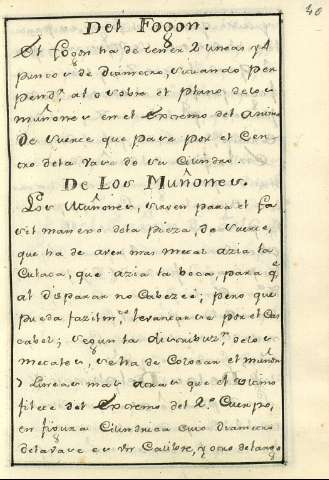 40
Del Fogon.
El fogon ha de tener 2 lineas y 4
puncos de Diametro, situando per
pend.r al o sobre el plano de los
muñones en el Extremo del anima
De suerte que pase por el Cen-
tro de la vase de su Cilindro.
De Los Muñones.
Los Muñones, sirven para el fa
sil manexo de la pieza, de suerte,
que ha de aver mas metal azia la
Culata, que azia la boca, para q.e
al disparar no Cabezee; pero que
pueda fazilm.te levantarse por el Cas
cabel; segun la distribuz.n de los
metales, se ha de Colocar el muñon
7 Lineas mas atras que el ultimo
filete del Extremo del 2.o Cuerpo,
en figura Cilindrica cuio Diametro
de la vase es un Calibre, y otro de largo